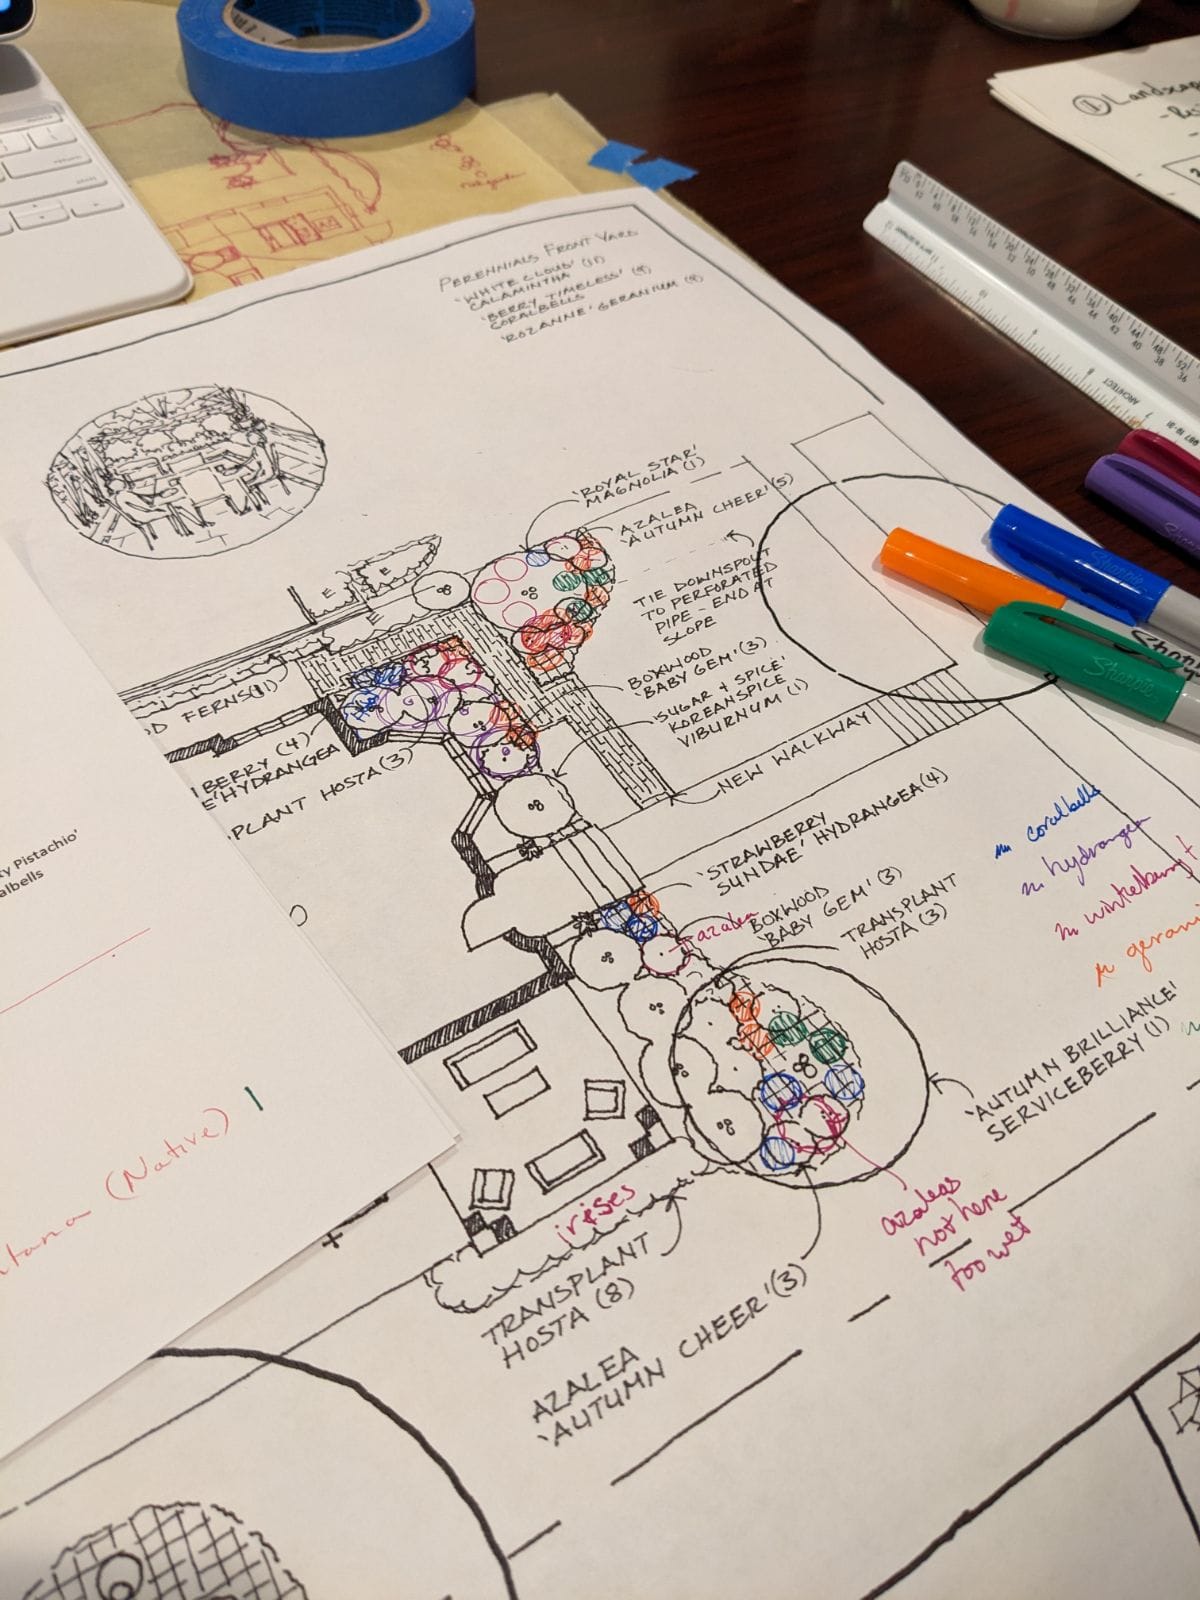 PERENNIALS FRONT YARD
'WHITE CLOUD' (11)
CALAMINTHA
'BERRY TIMELESS' (9)
CORALBELLS
'ROZANNE' GERANIUM (9)
①Landscap
'ROYAL STAR'
MAGNOLIA (1)
AZALEA
'AUTUMN CHEER' (5)
TIE DOWNSPOUT
TO PERFORATED
PIPE - END AT
SLOPE
BOXWOOD
'BABY GEM' (3)
'SUGAR + SPICE'
KOREANSPICE
VIBURNUM (1)
NEW WALKWAY
D FERNS(11)
BERRY (4)
E' HYDRANGEA
PLANT HOSTA (3)
'STRAWBERRY
SUNDAE' HYDRANGEA (4)
azalea
BOXWOOD
'BABY GEM' (3)
TRANSPLANT
HOSTA (3)
coralbells
hydrangea
winterberry +
gerani
'AUTUMN BRILLIANCE'
SERVICEBERRY (1)
azaleas
not here
too wet
irises
TRANSPLANT
HOSTA (8)
AZALEA
'AUTUMN CHEER' (3)
ty Pistachio'
albells
tana (Native)
ARCHITECT
Sharpie
Sharpie
Sharpie
return